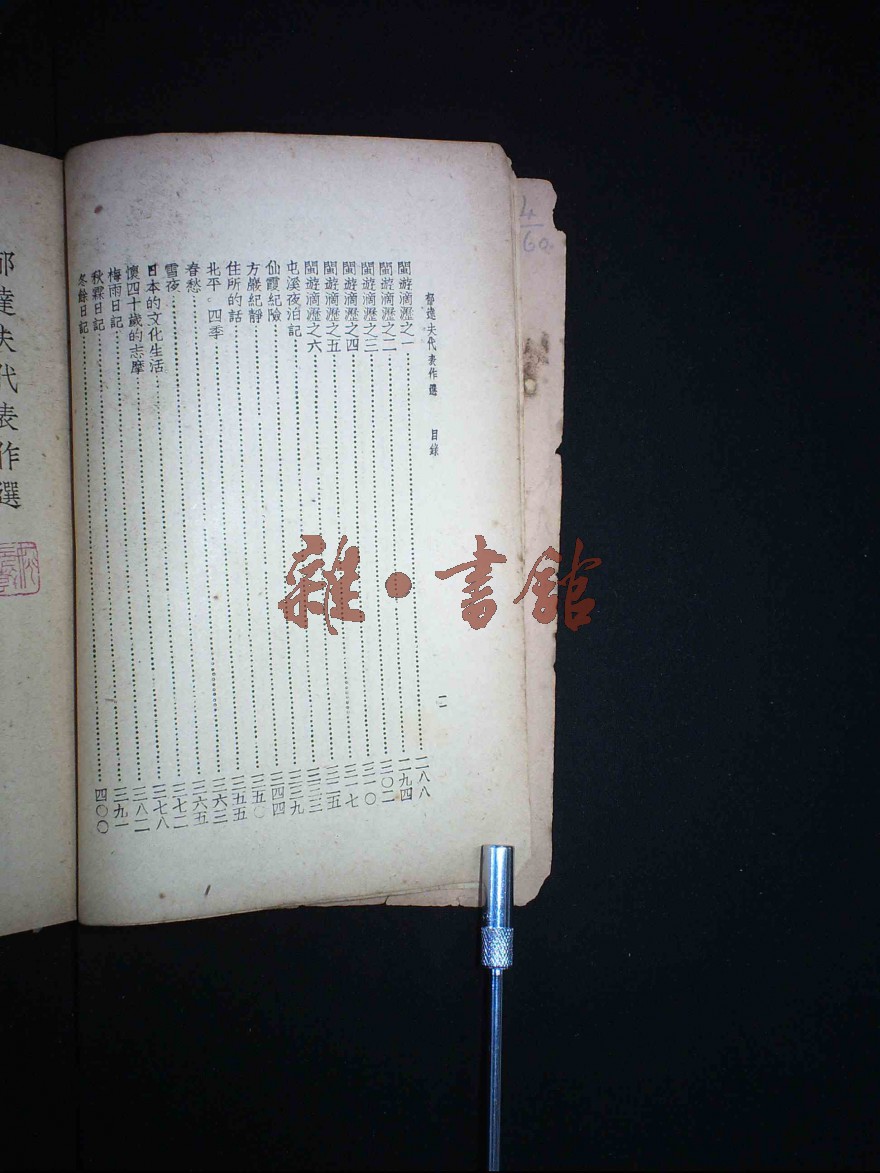 郁達夫代表作選 目錄 二
閩遊滴瀝之一 二八八
閩遊滴瀝之二 二九四
閩遊滴瀝之三 三〇二
閩遊滴瀝之四 三一〇
閩遊滴瀝之五 三一七
閩遊滴瀝之六 三二五
屯溪夜泊記 三三三
仙霞紀險 三三九
方巖紀靜 三四四
住所的話 三五〇
北平 四季 三五五
春愁 三六三
雪夜 三六五
日本的文化生活 三七二
懷四十歲的志摩 三七八
梅雨日記 三八二
秋霖日記 三九一
冬餘日記 四〇〇
郁達夫代表作選
雜·書館
4
60